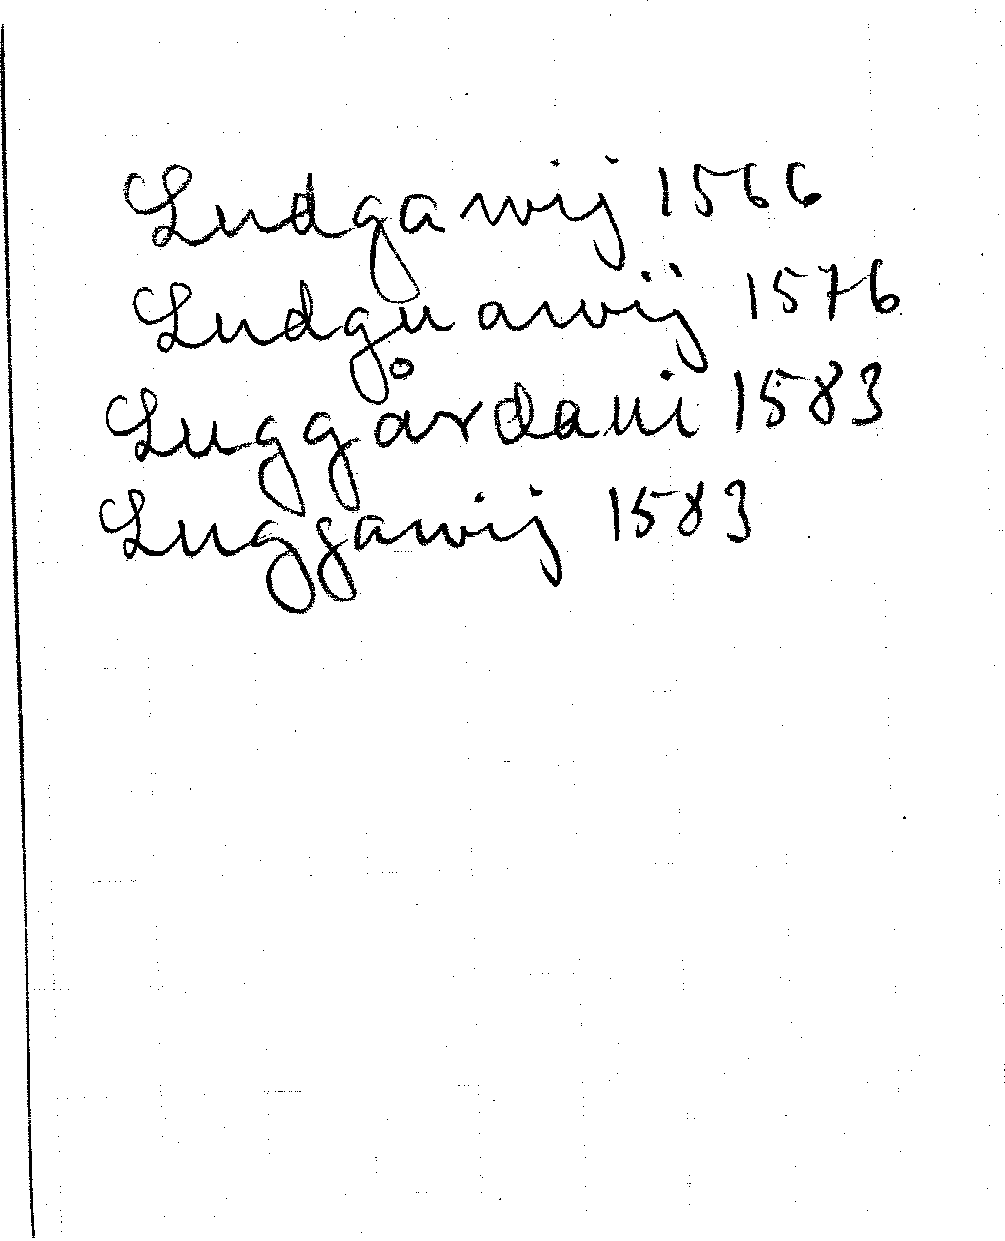 Ludgawij 1566
Ludguawij 1576
Luggårdaui 1583
Luggawij 1583